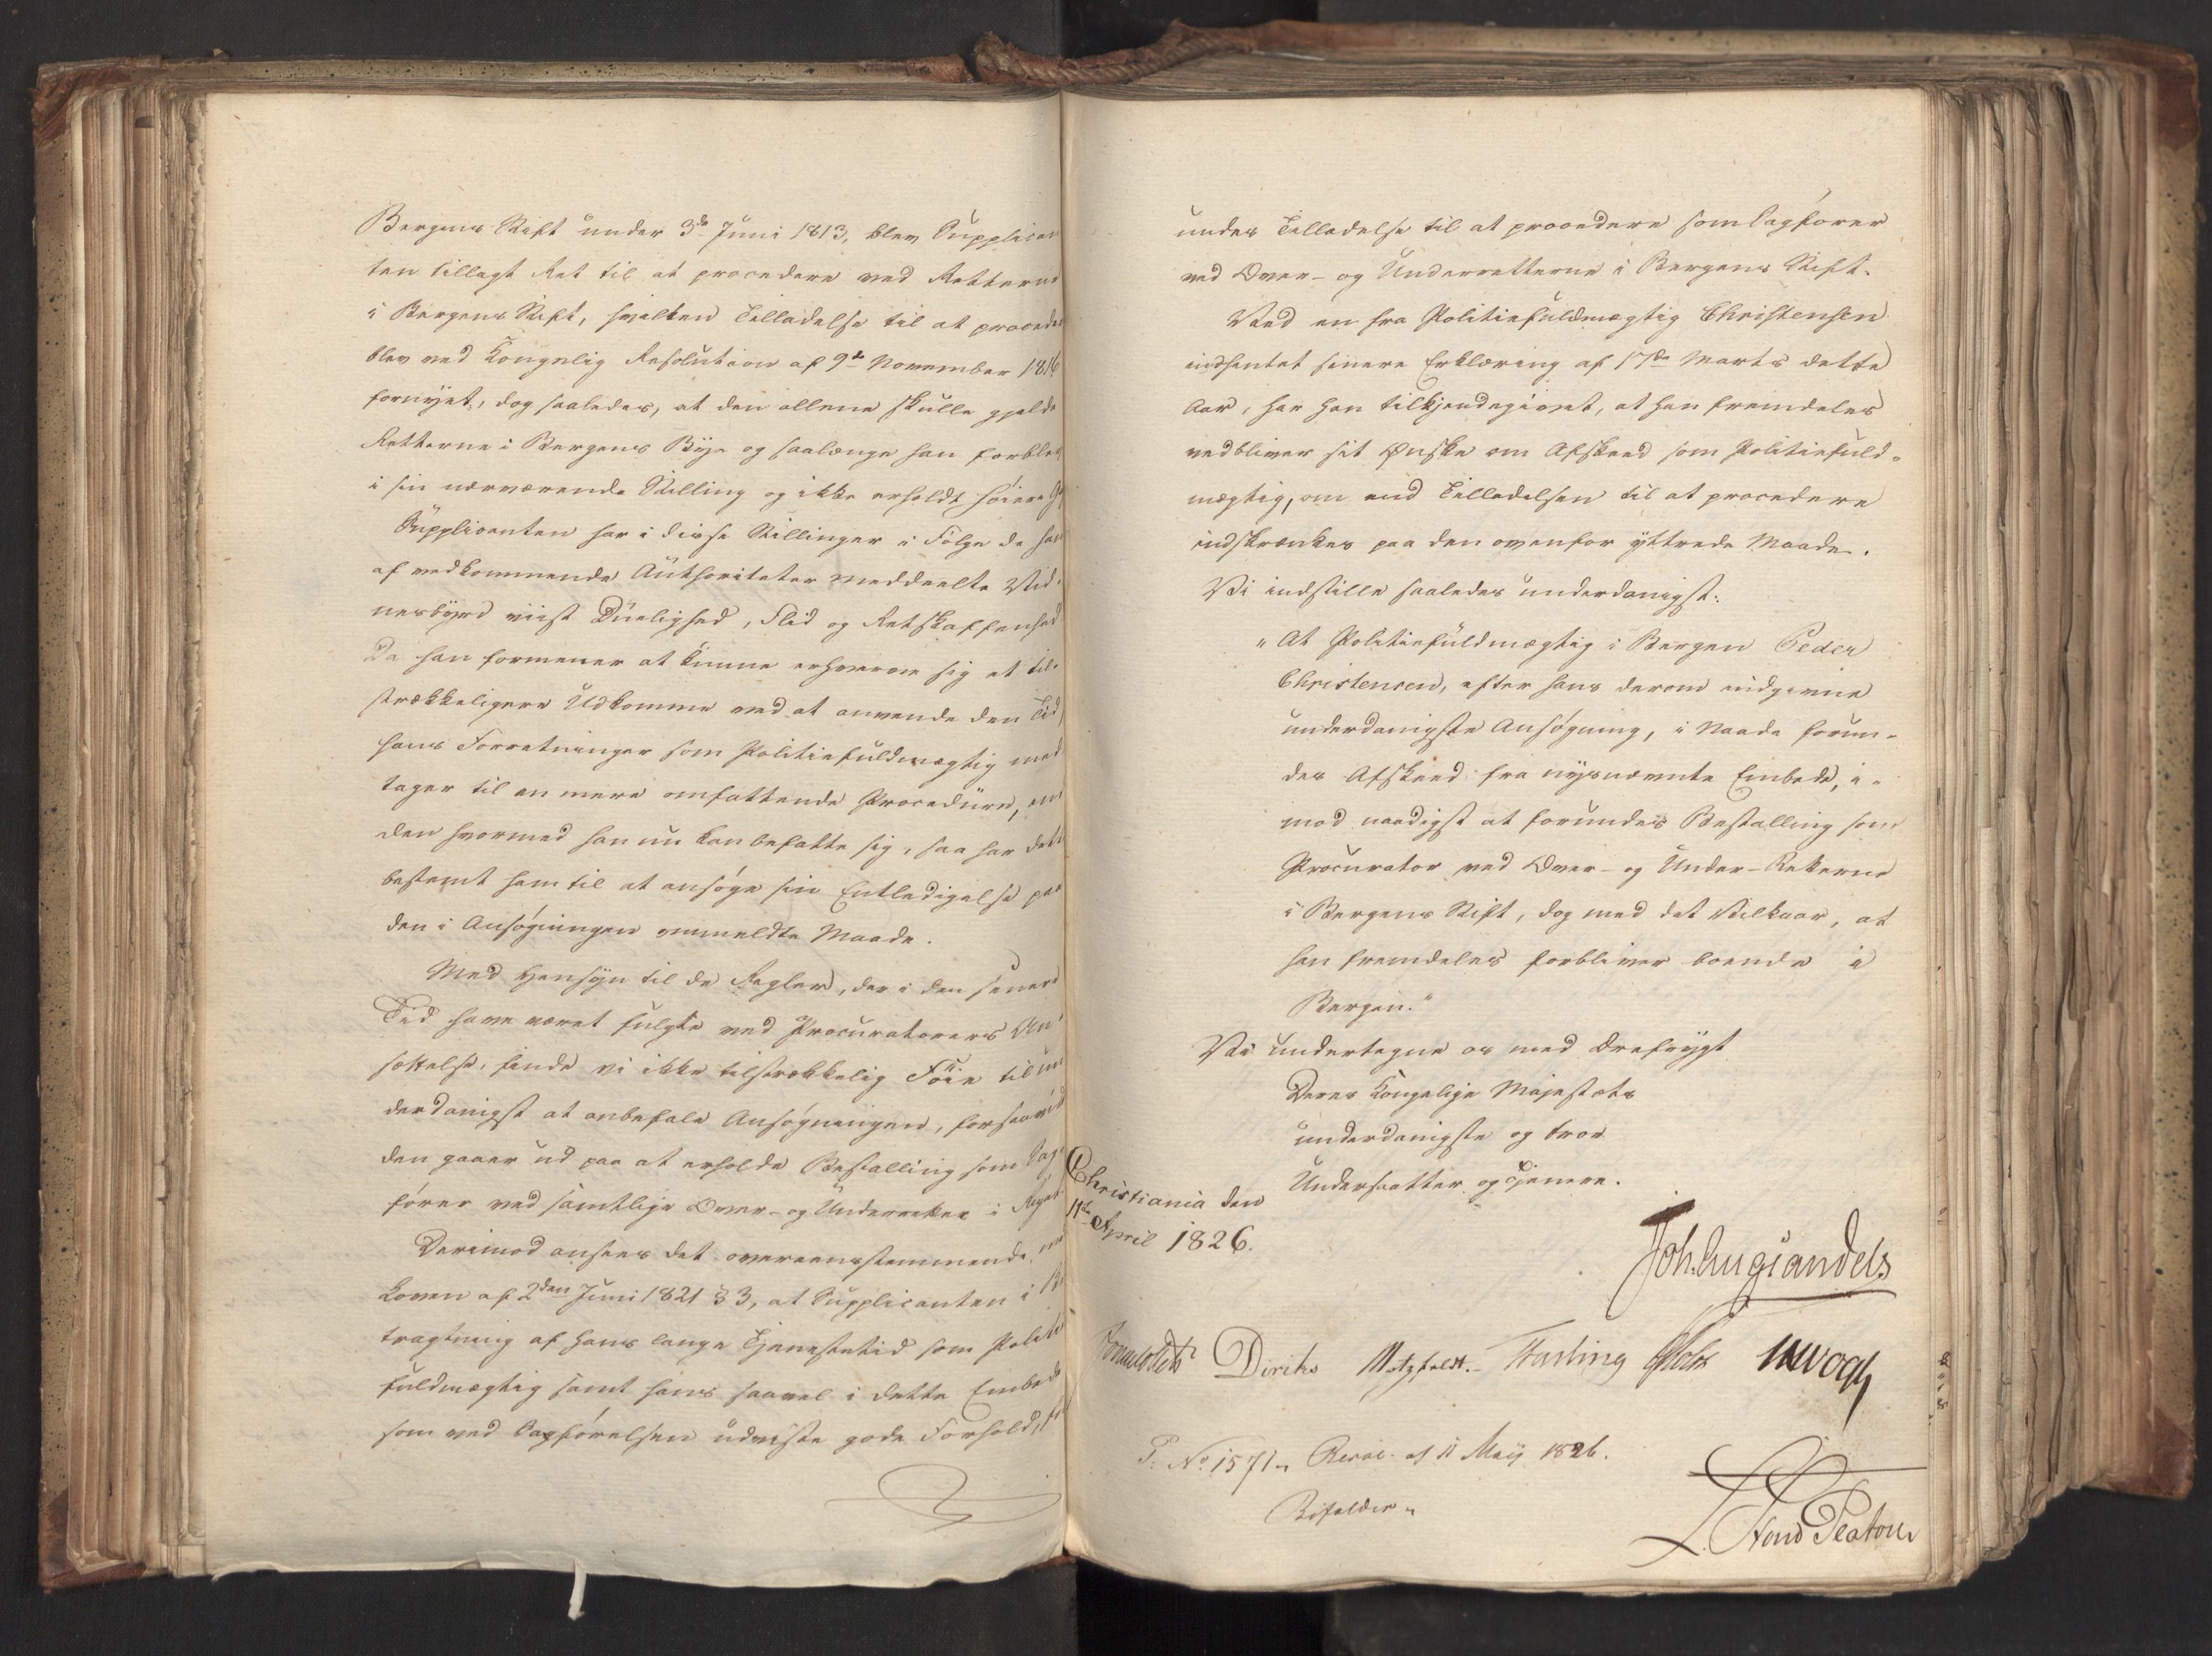 Bergens Stift under 3de Juni 1813, blev Supplican
ten tillagt Ret til at procedere ved Retterne
i Bergens Stift, hvilken Tilladelse til at proceder
blev ved Kongelig Resolution af 9de November 1816
fornyet, dog saaledes, at den allene skulle gjelde
Retterne i Bergens Bye og saalænge han forblev
i sin nærværende Stilling og ikke erholdt høiere
Supplicanten har i disse Stillinger i Følge de ham
af vedkommende Authoriteter meddeelte Vid-
nesbyrd viist Duelighed, Flid og Retskaffenhed
Da han formener at kunne erhverve sig et til-
strækkeligere Udkomme ved at anvende den Tid
hans Forretninger som Politiefuldmægtig med
tager til en mere omfattende Procedure, end
den hvormed han nu kan befatte sig, saa har dette
bestemt ham til at ansøge sin Entledigelse paa
den i Ansøgningen ommeldte Maade.
Med Hensyn til de Regler, der i den senere
Tid have været fulgte ved Procuratorers An-
sættelse, finde vi ikke tilstrækkelig Föie til un
derdanigst at anbefale Ansøgningen, forsaavidt
den gaaer ud paa at erholde Bestalling som Sag-
fører ved samtlige Over- og Underretter i Riget.
Derimod ansees det overeensstemmende med
Loven af 2den Juni 1821 § 3, at Supplicanten i Be
tragtning af hans lange Tjenestetid som Politie
fuldmægtig samt hans saavel i dette Embede
som ved Sagførelsen udviste gode Forhold,
undes Tilladelse til at procedere som Sagfører
ved Over- og Underretterne i Bergens Stift.
Ved en fra Politiefuldmægtig Christensen
indhentet senere Erklæring af 17de Marts dette
Aar, har han tilkjendegivet, at han fremdeles
vedbliver sit Ønske om Afskeed som Politiefuld-
mægtig, om end Tilladelsen til at procedere
indskrænkes paa den ovenfor yttrede Maade.
Vi indstille saaledes underdanigst:
"At Politiefuldmægtig i Bergen Peder
Christensen, efter hans derom indgivne
underdanigste Ansøgning, i Naade forun-
des Afskeed fra nysnævnte Embede, i-
mod naadigst at forundes Bestalling som
Procurator ved Over- og Under-Retterne
i Bergens Stift, dog med det Vilkaar, at
han fremdeles forbliver boende i
Bergen."
Vi undertegne os med Ærefrygt
Deres Kongelige Majestæts
underdanigste og troe
Undersaatter og Tjenere.
Christiania den
11te April 1826.
Joh. Aug: Sandels
Sommerfeldt Diriks Motzfeldt. Fasting JHVogt
P. No 1571. Resol. af 11 Maij 1826.
Bifaldes.
L. Stoud Platou